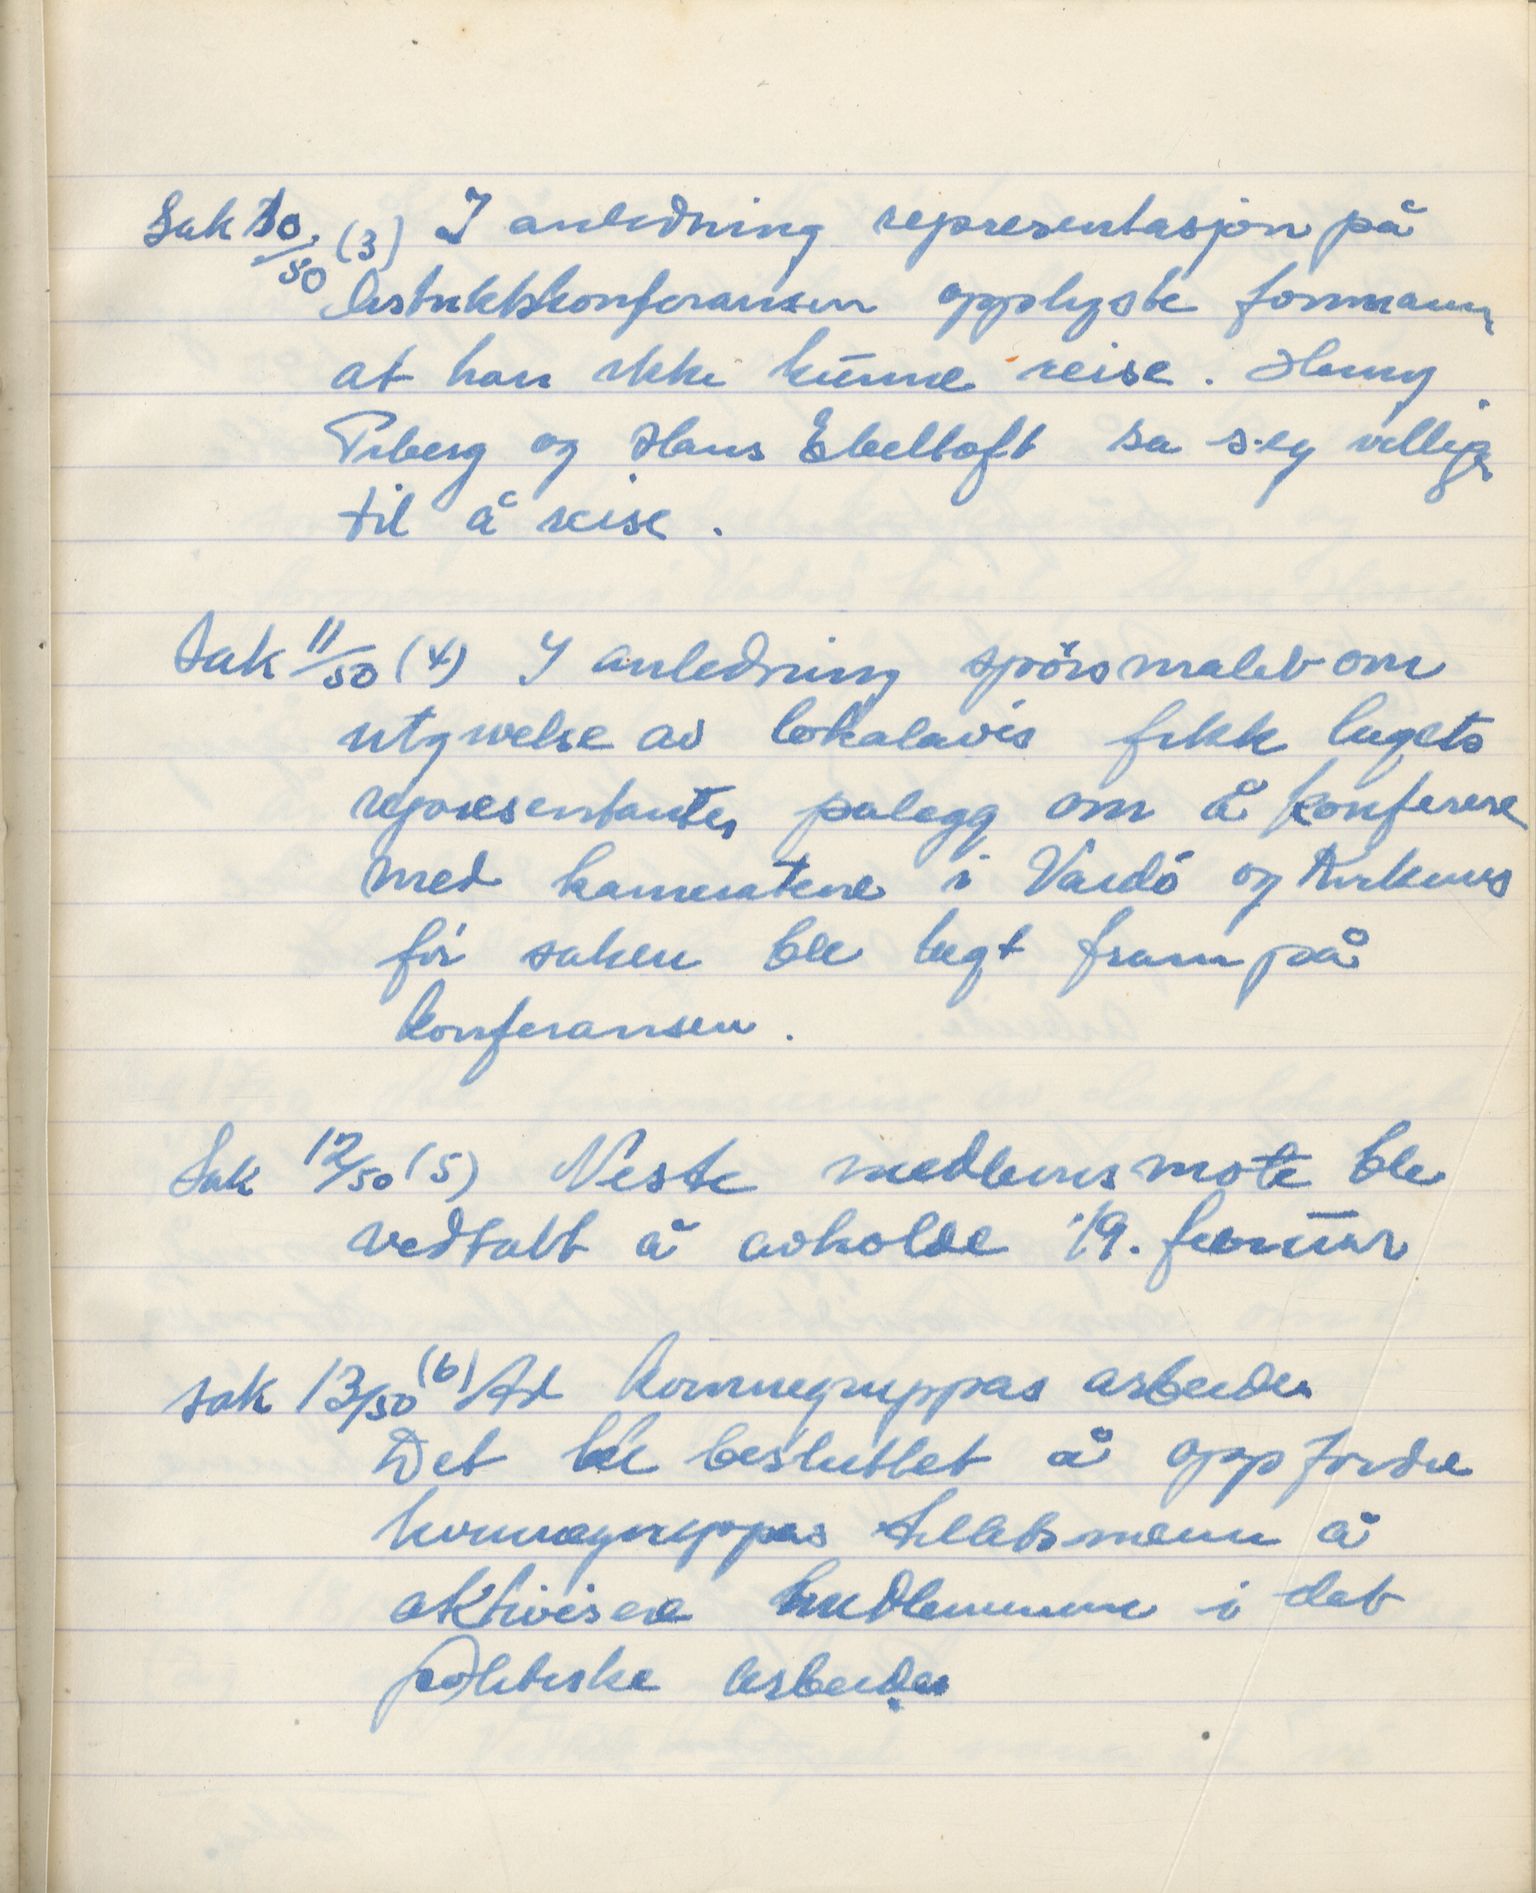 Sak 10/50 (3) I anledning representasjon på
distriktskonferansen opplyste formann
at han ikke kunne reise. Henry
Piberg og Hans Ebeltoft sa seg villige
til å reise.
Sak 11/50 (4) I anledning spörsmalet om
utgivelse av lokalavis fikk lagets
representanter palegg om å konferere
med kameratene i Vardö og Kirkenes
för saken ble lagt fram på
konferansen.
Sak 12/50 (5) Neste medlemsmote ble
vedtatt å avholde 19. februar
sak 13/50 (6) Ad kvinnegruppas arbeide
Det ble besluttet å oppfordre
kvinnegruppas tillitsmenn å
aktivisere medlemmene i det
politiske arbeide.